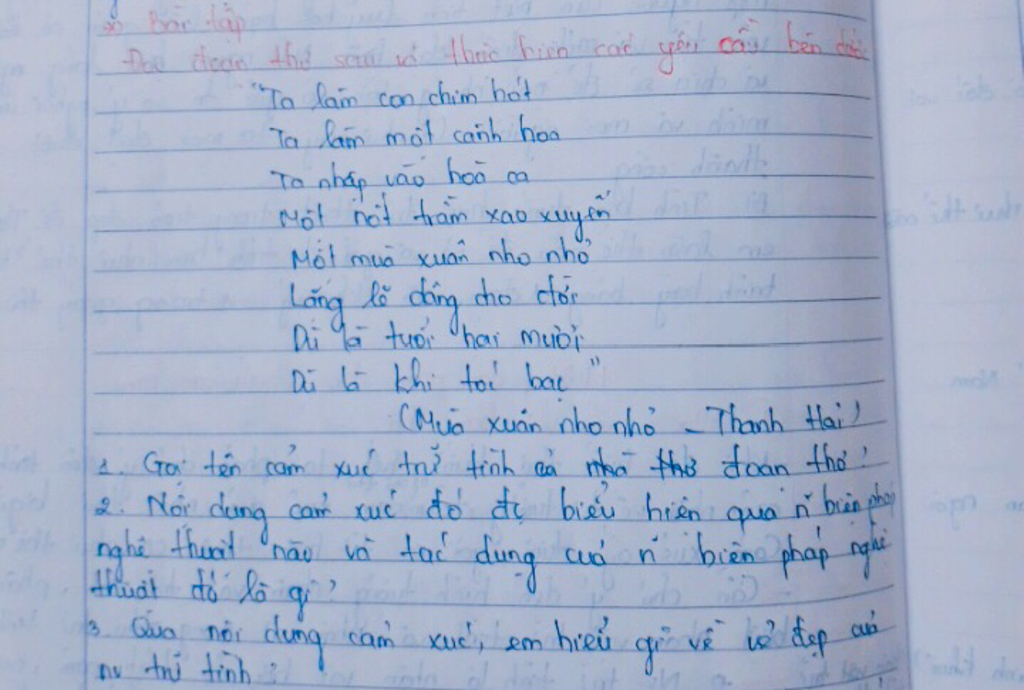 Bài tập
Đọc đoạn thơ sau và thực hiện các yêu cầu bên dưới
"Ta làm con chim hót
Ta làm một cành hoa
Ta nhập vào hoà ca
Một nốt trầm xao xuyến
Một mùa xuân nho nhỏ
Lặng lẽ dâng cho đời
Dù là tuổi hai mươi
Dù là khi tóc bạc"
(Mùa xuân nho nhỏ - Thanh Hải)
1. Gọi tên cảm xúc trữ tình cả nhà thơ đoạn thơ?
2. Nội dung cảm xúc đó đc biểu hiện qua n~ biện pháp
nghệ thuật nào và tác dụng của n~ biện pháp nghệ
thuật đó là gì?
3. Qua nội dung cảm xúc, em hiểu gì về vẻ đẹp của
nv trữ tình?